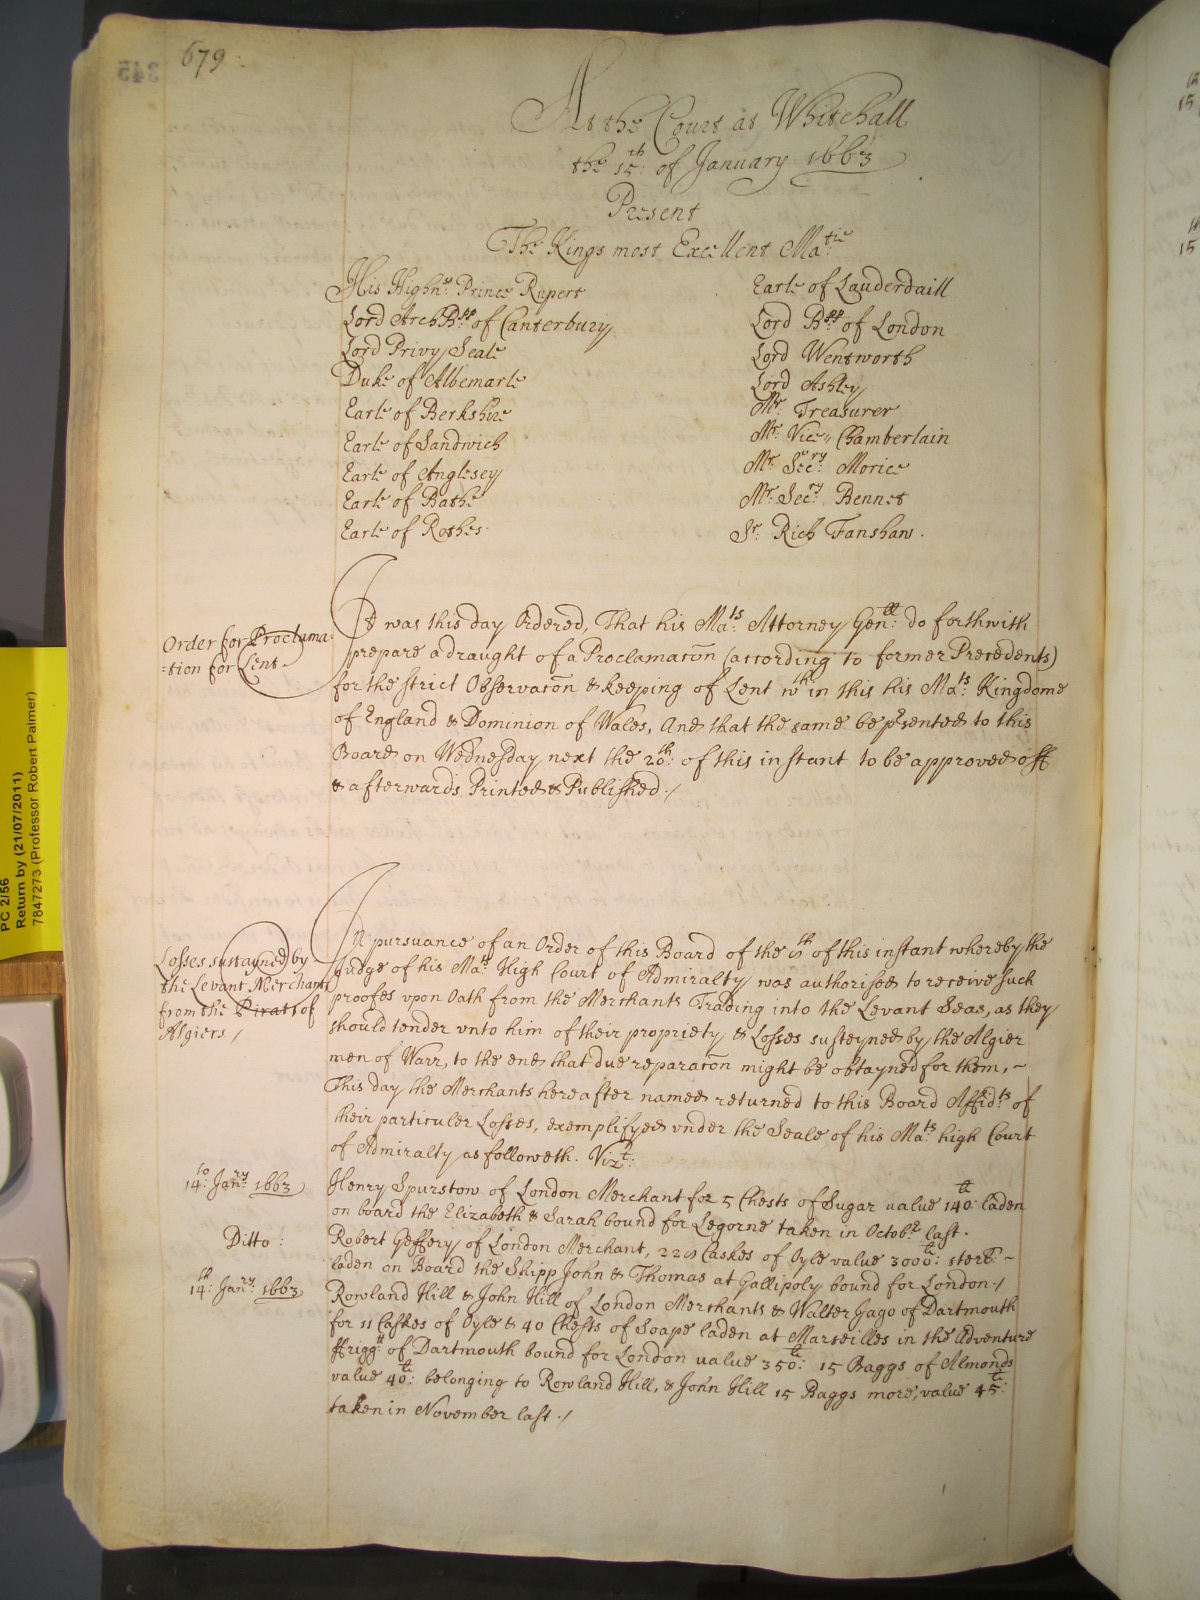 679
345
At the Court at Whitehall
the 15th: of January 1663
Present
The Kings most Excellent Matie:
His Highs: Prince Rupert
Lord ArchBpp: of Canterbury
Lord Privy Seale
Duke of Albemarle
Earle of Berkshire
Earle of Sandwich
Earle of Anglesey
Earle of Bathe
Earle of Rothes
Earle of Lauderdaill
Lord Bpp: of London
Lord Wentworth
Lord Ashley
Mr: Treasurer
Mr: Vice-Chamberlain
Mr: Secry: Morice
Mr: Secry: Bennet
Sr: Rich Fanshaw.
Order for Proclama-
=tion for Lent
It was this day Ordered, That his Mats: Attorney Genll: do forthwith
prepare a draught of a Proclamacon (according to former Precedents)
for the strict Observacon & keeping of Lent wthin this his Mats: Kingdome
of England & Dominion of Wales, And that the same be presented to this
Board on Wednesday next the 20th: of this instant to be approved off
& afterwards Printed & Published./
Losses sustayned by
the Levant Merchants
from the Pirats of
Algiers./
In pursuance of an Order of this Board of the th of this instant whereby the
Judge of his Mats High Court of Admiralty was authorised to receive such
proofes vpon Oath from the Merchants Trading into the Levant Seas, as they
should tender vnto him of their propriety & Losses susteyned by the Algier
men of Warr, to the end that due reparacon might be obtayned for them, ~
This day the Merchants hereafter named returned to this Board Affidts: of
their particuler Losses, exemplifyed vnder the Seale of his Mats: high Court
of Admiralty as followeth. Vizt:
14to: Janry: 1663
Henry Spurstow of London Merchant for 5 Chests of Sugar value 140li: laden
on board the Elizabeth & Sarah bound for Legorne taken in Octobr last.
Ditto:
Robert Geffery of London Merchant, 220 Caskes of Oyle value 3000li: sterl: ~
laden on Board the Shipp John & Thomas at Gallipoly bound for London./
14th: Janry: 1663
Rowland Hill & John Hill of London Merchants & Walter Jago of Dartmouth
for 11 Caskes of Oyle & 40 Chests of Soape laden at Marseilles in the Adventure
ffriggtt: of Dartmouth bound for London value 350li: 15 Baggs of Almonds
value 40li: belonging to Rowland Hill, & John Hill 15 Baggs more, value 45li:
taken in November last./
PC 2/56
Return by (21/07/2011)
7847273 (Professor Robert Palmer)